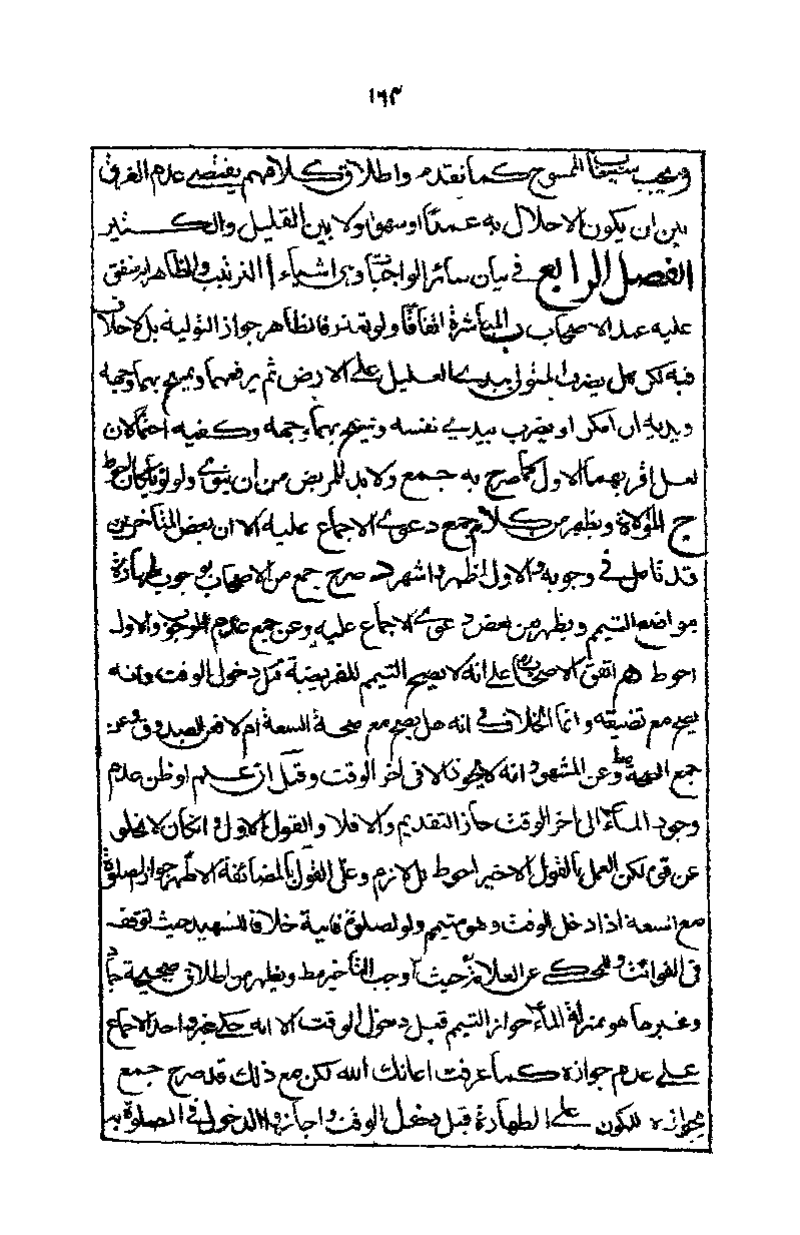 ١٦٣
ويجب استيعاب الممسوح كما تقدم واطلاق كلامهم يقتضى عدم الفرق
بين ان يكون الاخلال به عمدا او سهوا ولا بين القليل والكثير
الفصل الرابع فى بيان سائر الواجبات وهى اشياء ا الترتيب والظاهر انه متفق
عليه عند الاصحاب ب المباشرة اتفاقا ولو تعذر فالظاهر جواز التولية بلا خلاف
فيه لكن هل يضرب المتولى بيدى العليل على الارض ثم يرفعهما ويمسح بهما وجهه
ويديه ان امكن او يضرب بيدى نفسه ويمسح بهما وجهه وكفيه احتمالان
لعل اقربهما الاول كما صرح به جمع ولابد للمريض من ان ينوى ولو نويا كان احوط
ج الموالاة ويظهر من كلام جمع دعوى الاجماع عليه الا ان بعض المتأخرين
قد تأمل فى وجوبه والاول اظهر واشهر د صرح جمع من الاصحاب بوجوب طهارة
مواضع التيمم ويظهر من بعض دعوى الاجماع عليه وعن جمع عدم الوجوب والاول
احوط هم اتفق الاصحاب على انه لا يصح التيمم للفريضة قبل دخول الوقت وانه
يصح مع تضيقه وانما الخلاف فى انه هل يصح مع صحة السعة ام لا فعن الصدوق وعن
جمع الصحة وعن المشهور انه لا يجوز الا فى اخر الوقت وقيل ان علم او ظن عدم
وجود الماء الى اخر الوقت جاز التقديم والا فلا والقول الاول وان كان لا يخلو
عن قوة لكن العمل بالقول الاخير احوط بل لازم وعلى القول بالمضائقة الاظهر جواز الصلوة
مع السعة اذا دخل الوقت وهو متيمم ولو لصلوة فايتة خلافا للشهيد حيث توقف
فى الفوائت والمحكى عن العلامة حيث اوجب التأخير مط ويظهر من اطلاق صحيحة حماد
وغيرها هو بمنزلة الماء جواز التيمم قبل دخول الوقت الا انه حكى غير واحد الاجماع
على عدم جوازه كما عرفت اعانك الله لكن مع ذلك قد صرح جمع
بجوازه للكون على الطهارة قبل دخول الوقت واجازوا الدخول فى الصلوة به